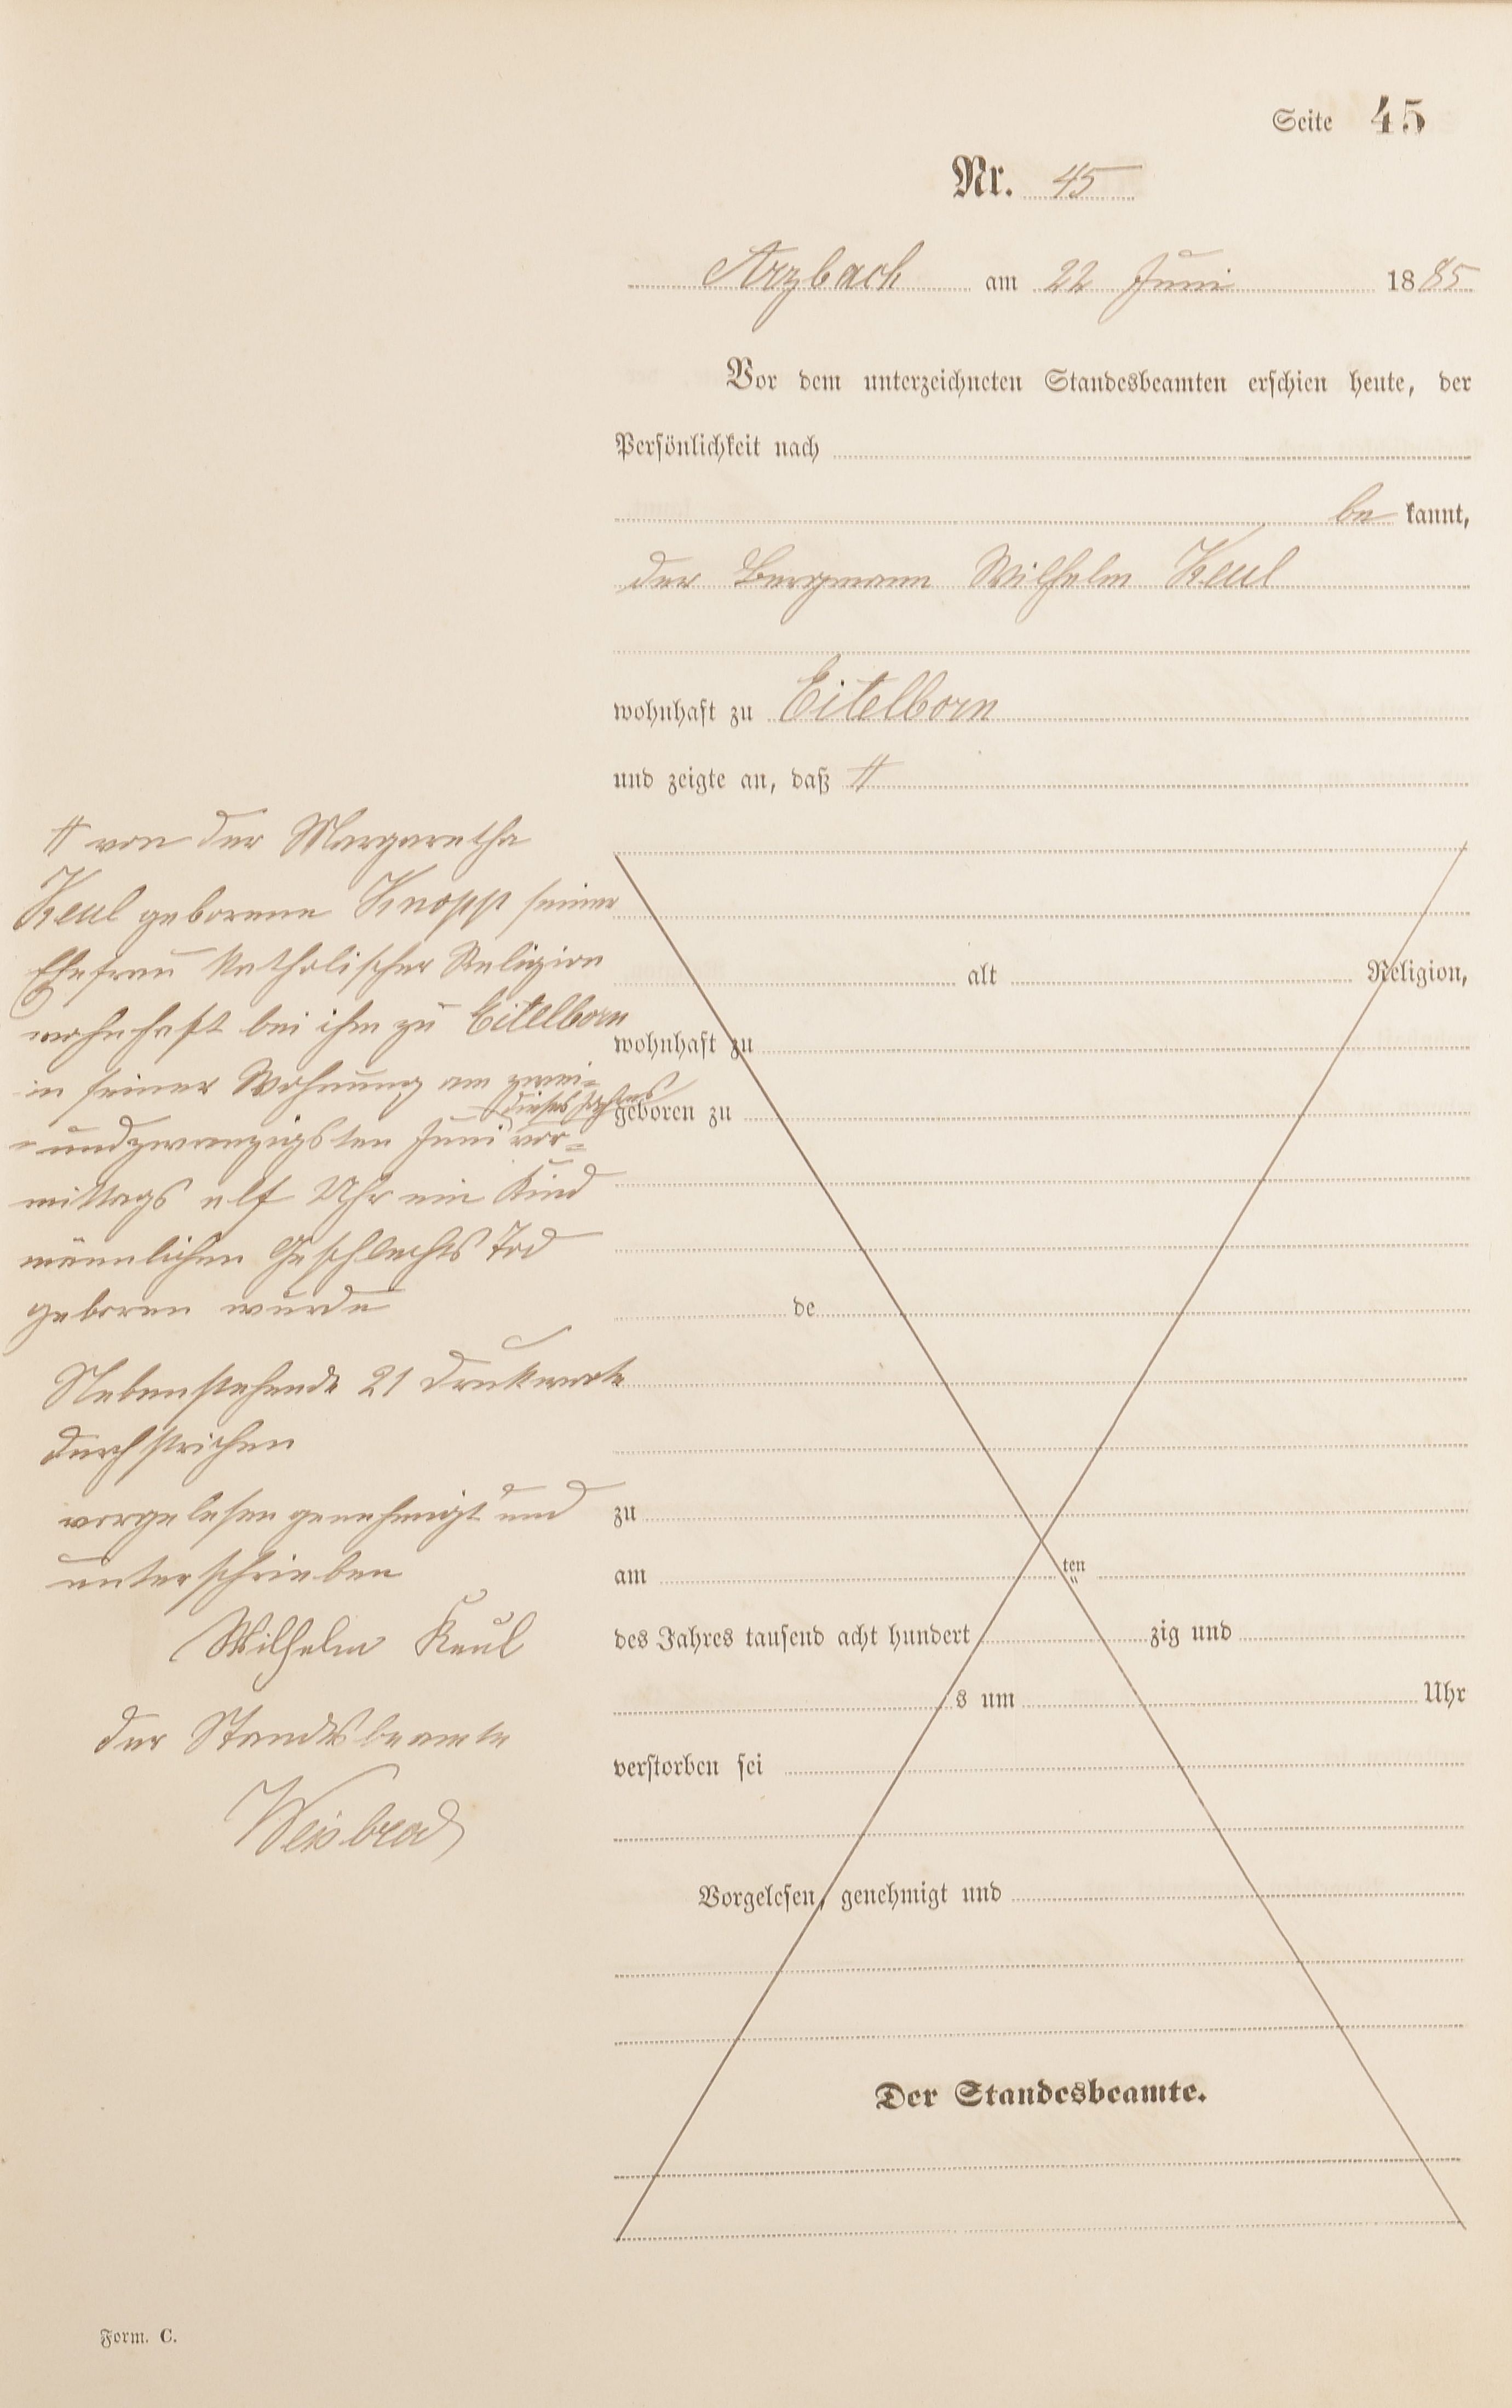 Seite 45
Nr. 45
Arzbach am 22 Juni 1885
Vor dem unterzeichneten Standesbeamten erschien heute, der
Persönlichkeit nach
be kannt,
der Bergmann Wilhelm Keul
wohnhaft zu Eitelborn
und zeigte an, daß #
# von der Margaretha
Keul geborene Knopp seiner
Ehefrau katholischer Religion
wohnhaft bei ihm zu Eitelborn
in seiner Wohnung am zwei-
dieses Jahres
-undzwanzigsten Juni vor-
mittags elf Uhr ein Kind
männlichen Geschlechts Tod
geboren wurde
Nebenstehende 21 Druckworte
durchstrichen
vorgelesen genehmigt und
unterschrieben
Wilhelm Keul
der Standesbeamte
Weisbrod
alt Religion,
wohnhaft zu
geboren zu
de
zu
am ten
des Jahres tausend acht hundert zig und
s um Uhr
verstorben sei
Vorgelesen, genehmigt und
Der Standesbeamte.
Form. C.